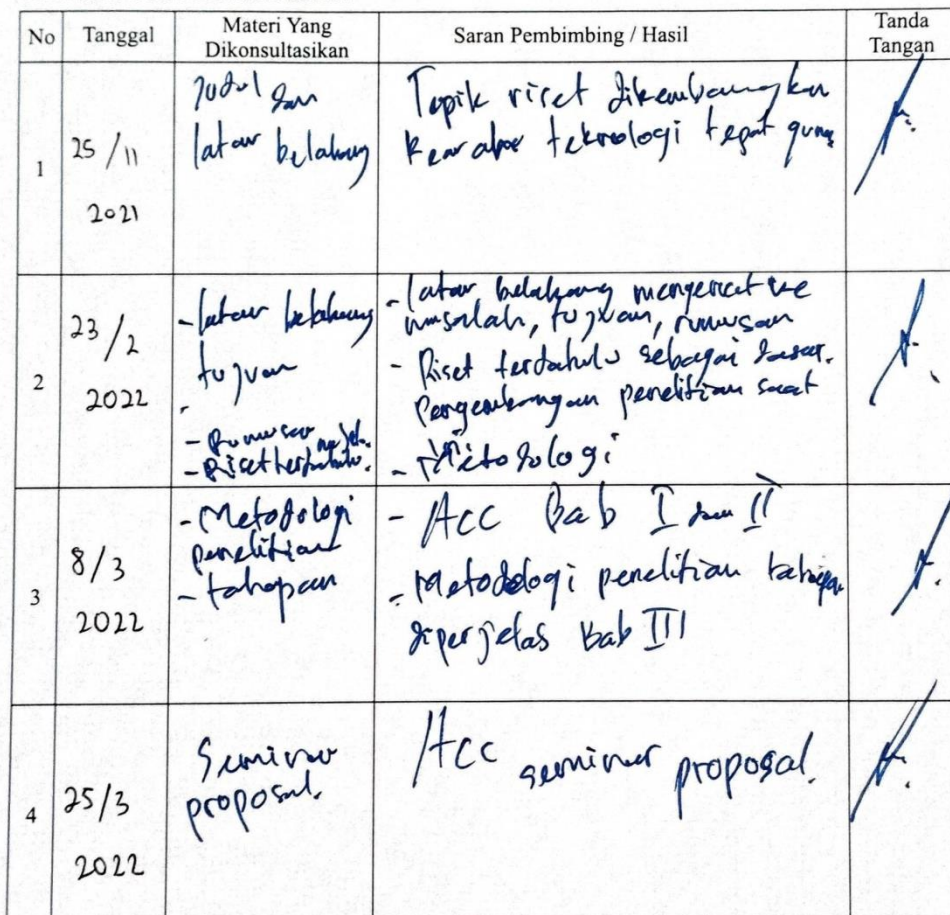 No
Tanggal
Materi Yang
Dikonsultasikan
Saran Pembimbing / Hasil
Tanda
Tangan
1
25/11
2021
Judul dan
latar belakang
Topik riset dikembangkan
kearah teknologi tepat guna
2
23/2
2022
- latar belakang
tujuan
- Rumusan
- Riset terdahulu.
- latar belakang mengerucut ke
masalah, tujuan, rumusan
- Riset terdahulu sebagai dasar.
Pengembangan penelitian saat
- Metodologi
3
8/3
2022
- Metodologi
penelitian
- tahapan
- Acc Bab I dan II
- Metodologi penelitian tahapan
diperjelas Bab III
4
25/3
2022
Seminar
proposal.
Acc seminar proposal.